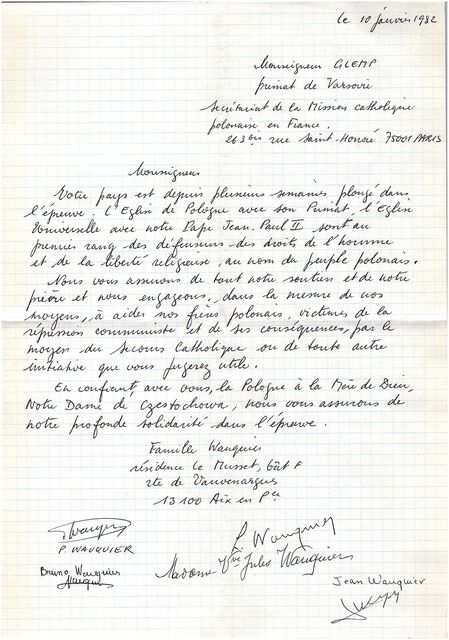 le 10 janvier 1982
Monseigneur GLEMP
primat de Varsovie
secrétariat de la Mission catholique
polonaise en France.
263 bis rue Saint-Honoré 75001 PARIS
Monseigneur
Votre pays est depuis plusieurs semaines plongé dans
l'épreuve. L'Eglise de Pologne avec son Primat, l'Eglise
Universelle avec notre Pape Jean.Paul II sont au
premier rang des défenseurs des droits de l'homme
et de la liberté religieuse, au nom du peuple polonais.
Nous vous assurons de tout notre soutien et de notre
prière et nous engageons, dans la mesure de nos
moyens, à aider nos frères polonais, victimes de la
répression communiste et de ses conséquences, par le
moyen du Secours Catholique ou de toute autre
initiative que vous jugerez utile.
En confiant, avec vous, la Pologne à la Mère de Dieu,
Notre Dame de Czestochowa, nous vous assurons de
notre profonde solidarité dans l'épreuve.
Famille Wauquier
résidence le Musset, bât F
rte de Vauvenargues
13100 Aix en Pce
Wauquier
P. WAUQUIER
P Wauquier
Madame Vve Jules Wauquier
Bruno Wauquier
Wauquier
Jean Wauquier